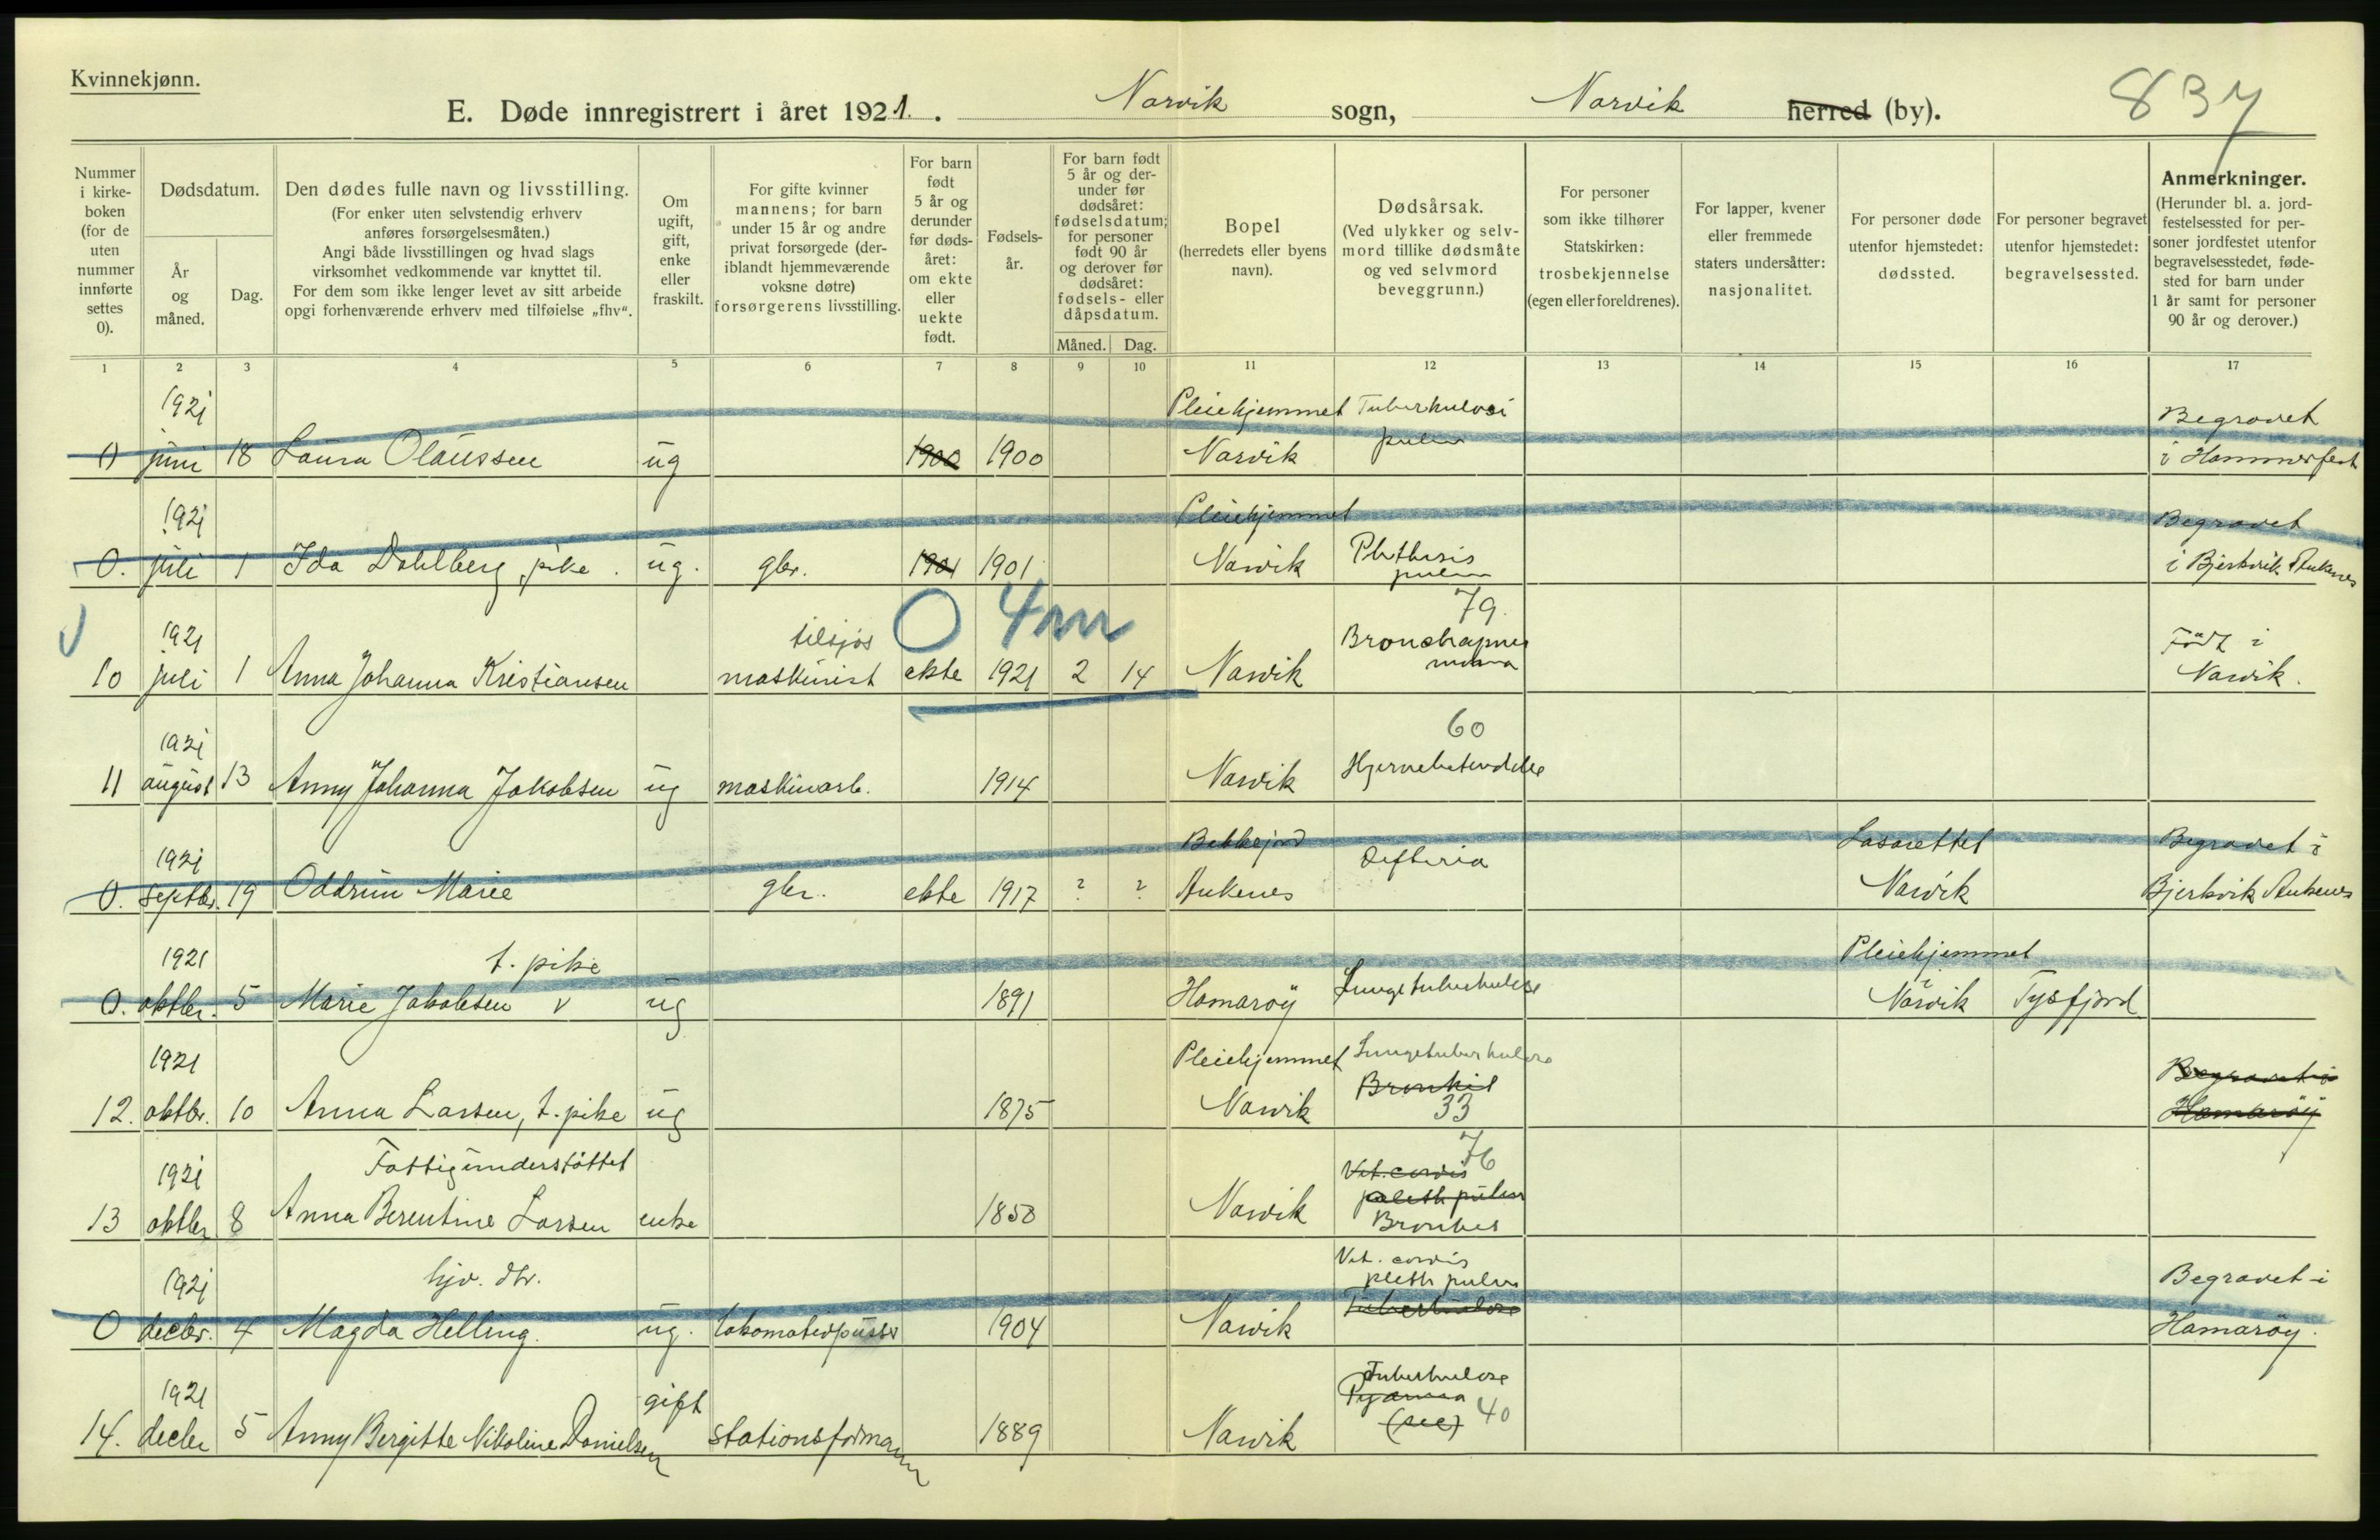 Kvinnekjønn.
E. Døde innregistrert i året 1921. Narvik sogn, Narvik herred (by).
837
Nummer i kirkeboken (for de uten nummer innførte settes 0).
Dødsdatum.
År og måned.
Dag.
Den dødes fulle navn og livsstilling.
(For enker uten selvstendig erhverv anføres forsørgelsesmåten.)
Angi både livsstillingen og hvad slags virksomhet vedkommende var knyttet til.
For dem som ikke lenger levet av sitt arbeide opgi forhenværende erhverv med tilføielse „fhv“.
Om ugift, gift, enke eller fraskilt.
For gifte kvinner mannens; for barn under 15 år og andre privat forsørgede (deriblandt hjemmeværende voksne døtre) forsørgerens livsstilling.
For barn født 5 år og derunder før dødsåret: om ekte eller uekte født.
Fødselsår.
For barn født 5 år og derunder før dødsåret: fødselsdatum; for personer født 90 år og derover før dødsåret: fødsels- eller dåpsdatum.
Måned. Dag.
Bopel (herredets eller byens navn).
Dødsårsak.
(Ved ulykker og selvmord tillike dødsmåte og ved selvmord beveggrunn.)
For personer som ikke tilhører Statskirken: trosbekjennelse (egen eller foreldrenes).
For lapper, kvener eller fremmede staters undersåtter: nasjonalitet.
For personer døde utenfor hjemstedet: dødssted.
For personer begravet utenfor hjemstedet: begravelsessted.
Anmerkninger.
(Herunder bl. a. jordfestelsessted for personer jordfestet utenfor begravelsesstedet, fødested for barn under 1 år samt for personer 90 år og derover.)
1 2 3 4 5 6 7 8 9 10 11 12 13 14 15 16 17
1921 Pleiehjemmet Tuberkulosi Begravet
0 juni 18 Laura Olaussen ug 1900 1900 Narvik pulm i Hammerfest
1921 Pleiehjemmet Begravet
0. juli 1 Ida Dahlberg, pike. ug. gbr. 1901 1901 Narvik Phthisis pulm i Bjerkvik Ankenes
0 4m 79.
1921 tilsjøs Bronchopneu Født i
10 juli 1 Anna Johanna Kristiansen maskinist ekte 1921 2 14 Narvik monia Narvik.
1921 60
11 august 13 Anny Johanna Jakobsen ug maskinarb. 1914 Narvik Hjernebetendelse
1921 Difteria Lasarettet Begravet i
0. septbr. 19 Oddrun Marie gbr. ekte 1917 ? ? Ankenes Narvik Bjerkvik Ankenes
1921 t. pike Pleiehjemmet
0. oktbr. 5 Marie Jakobsen v ug 1891 Hamarøy Lungetuberkulose i Narvik Tysfjord
1921 Pleiehjemmet Lungetuberkulose Begravet i
12. oktbr. 10 Anna Larsen, t. pike ug 1875 Narvik Bronkit 33 Hamarøy
1921 Fattigunderstøttet Vit. cordis 76
13 oktbr 8 Anna Berentine Larsen enke 1858 Narvik
1921 hjv. dtr. Vit. cordis Begravet i
0 decbr. 4 Magda Helling. ug. lokomotivpusser 1904 Narvik Tuberkulose Hamarøy.
1921 gift Tuberkulose
14. decbr 5 Anny Bergitte Nikoline Danielsen stationsformann 1889 Narvik 40